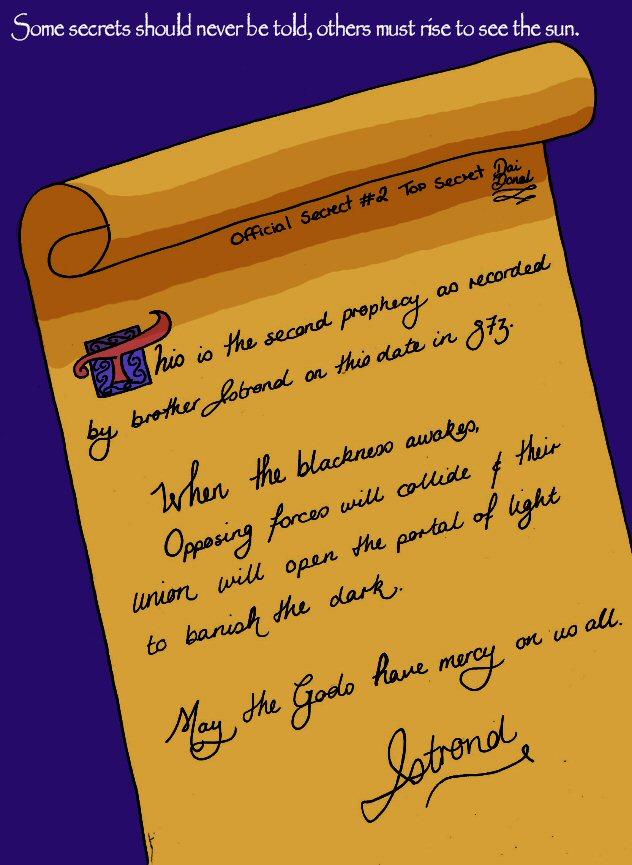 Some secrets should never be told, others must rise to see the sun.
Official Secrect #2 Top Secret Dai Donel
This is the second prophecy as recorded
by brother Istrond on this date in 873.
When the blackness awakes,
Opposing forces will collide & their
union will open the portal of light
to banish the dark.
May the Gods have mercy on us all.
Istrond